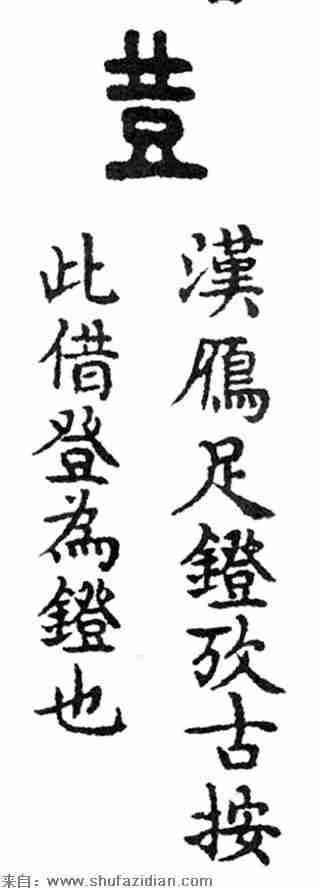 荳
漢鴈足鐙攷古按
此借登為鐙也
来自：www.shufazidian.com